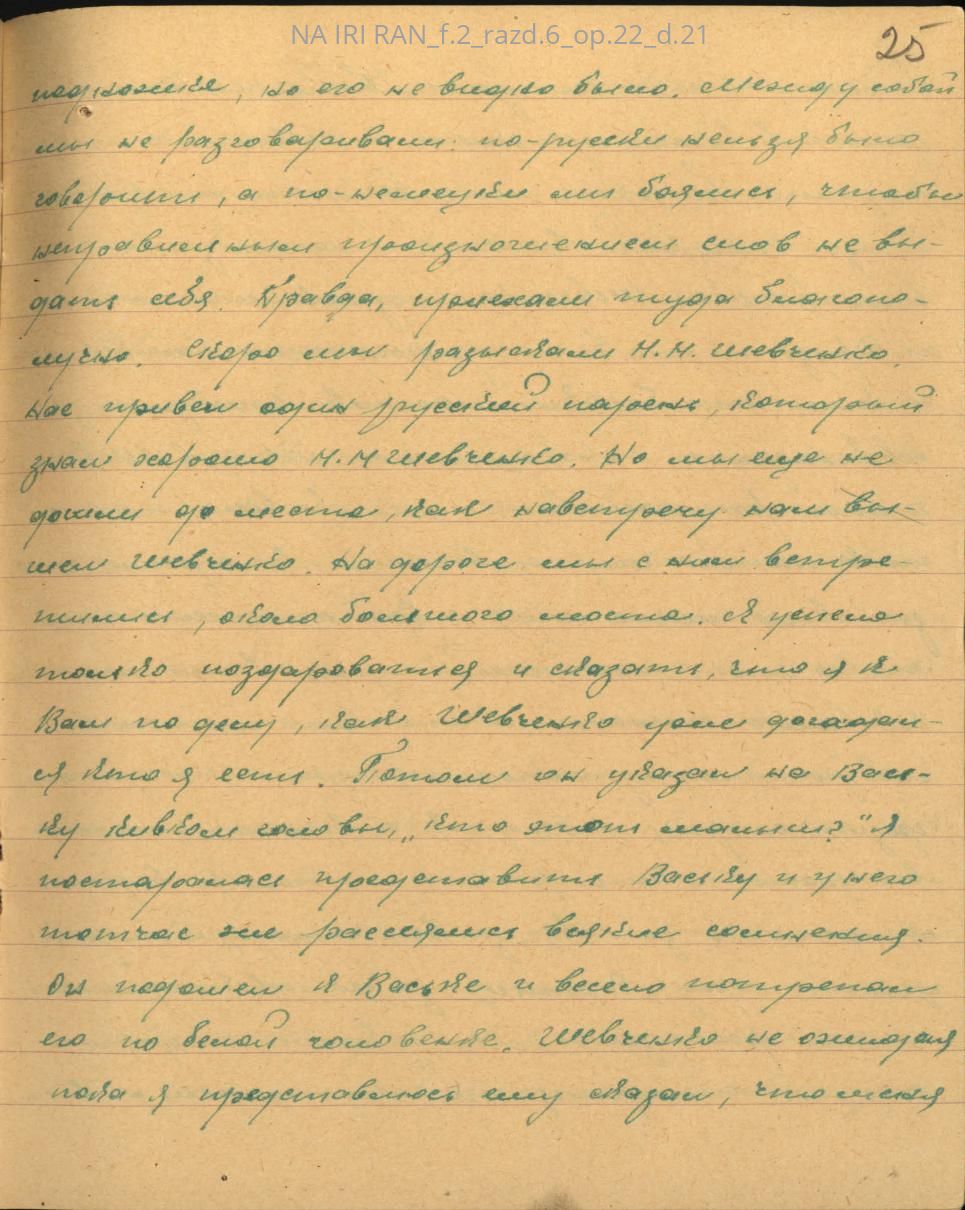 NA IRI RAN_f.2_razd.6_op.22_d.21
25
подножке, но его не видно было. Между собой
мы не разговаривали: по-русски нельзя было
говорить, а по-немецки мы боялись, чтобы
неправильным произношением слов не вы-
дать себя. Правда, приехали туда благопо-
лучно. Скоро мы разыскали Н.Н. Шевченко.
Нас привел один русский парень, который
знал хорошо Н.Н Шевченко. Но мы еще не
дошли до места, как навстречу нам вы-
шел Шевченко. На дороге мы с ним встре-
тились, около большого моста. Я успела
только поздароваться и сказать, что я к
Вам по делу, как Шевченко уже догадал-
ся кто я есть. Потом он указал на Вась-
ку кивком головы, „кто этот малыш?" Я
постаралась представить Ваську и у него
тотчас же рассеялись всякие сомнения.
Он подошел к Ваське и весело потрепал
его по белой головенке. Шевченко не ожидая
пока я представлюсь ему сказал, что меня